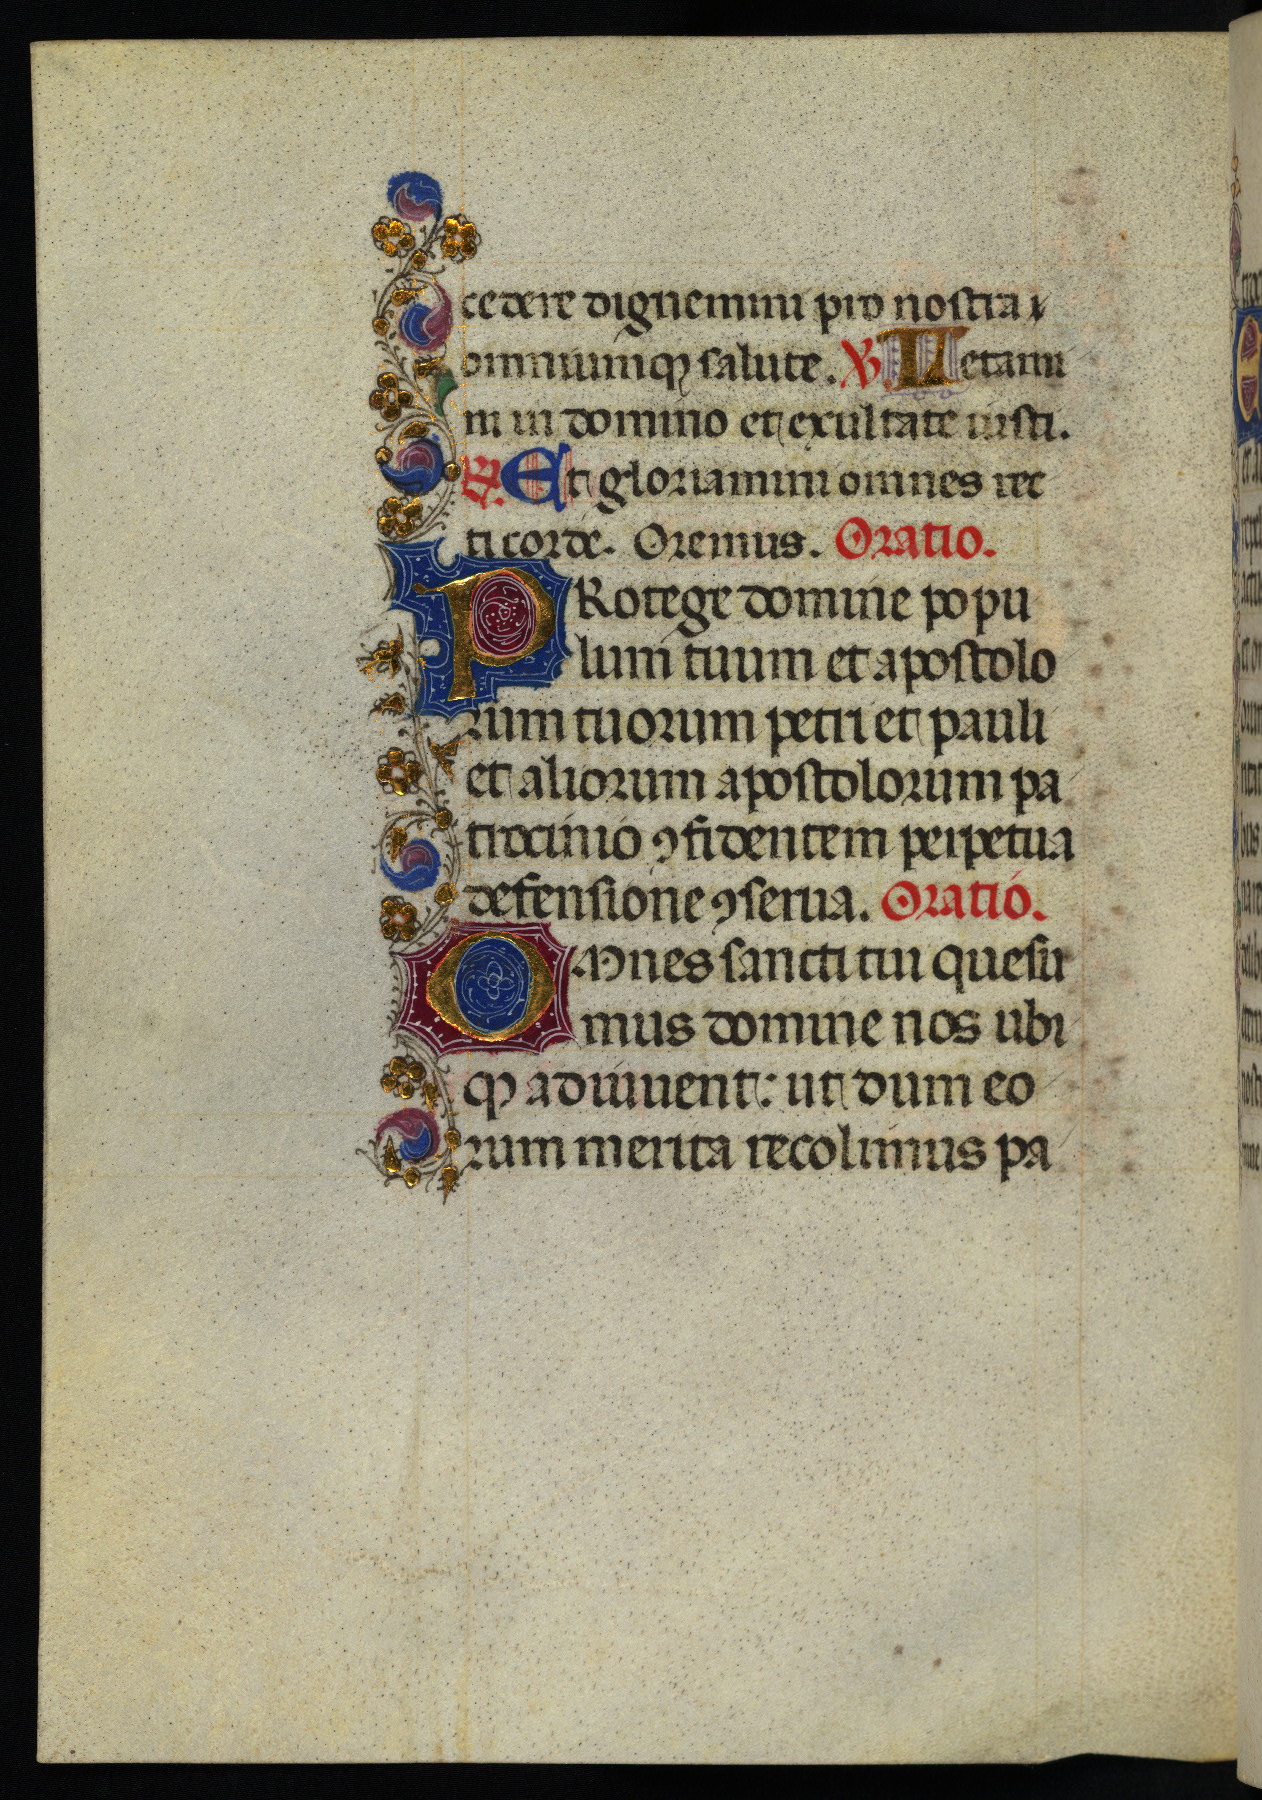 cedere dignemini pro nostra
omniumq̨ salute. ℣ Letami
ni in domino et exultate iusti.
℟ Et gloriamini omnes rec
ti corde. Oremus. Oratio.
PRotege domine popu
lum tuum et apostolo
rum tuorum petri et pauli
et aliorum apostolorum pa
trocinio ꝯfidentem perpetua
defensione ꝯserua. Oratio.
OMnes sancti tui quesu
mus domine nos ubi
q̨ adiuuent: ut dum eo
rum merita recolimus pa